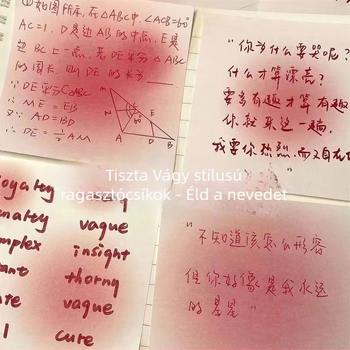 ①如图所示,在△ABC中,∠ACB=60°
AC=1,D是边AB的中点,E是
边BC上一点,若DE平分△ABC
的周长,则DE的长为
∵DE平分C△ABC
∴ME=EB
又∵AD=BD
∴DE=½AM
M
C
E
A
D
B
"你为什么要哭呢?
什么才算漂亮?
要多有趣才有趣
你就来这一趟,
我要你热烈,而又自在
Tiszta Vágy stílusú
ragasztócsíkok - Éld a nevedet
loyalty
vague
complex
insight
thorny
vague
cure
"不知道该怎么形容
但你好像是我永远
的星星"